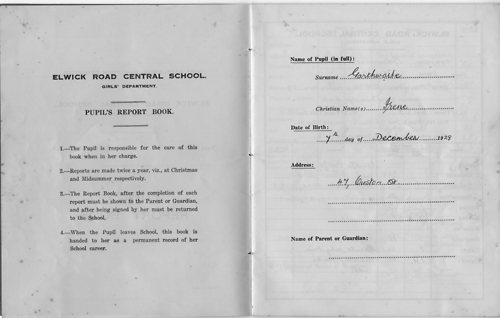 ELWICK ROAD CENTRAL SCHOOL.
GIRLS' DEPARTMENT.
PUPIL'S REPORT BOOK.
1.—The Pupil is responsible for the care of this
book when in her charge.
2.—Reports are made twice a year, viz., at Christmas
and Midsummer respectively.
3.—The Report Book, after the completion of each
report must be shown to the Parent or Guardian,
and after being signed by her must be returned
to the School.
4.—When the Pupil leaves School, this book is
handed to her as a permanent record of her
School career.
Name of Pupil (in full):
Surname Garthwaite
Christian Name(s) Irene
Date of Birth:
7th day of December 1929
Address:
47, St.
Name of Parent or Guardian: